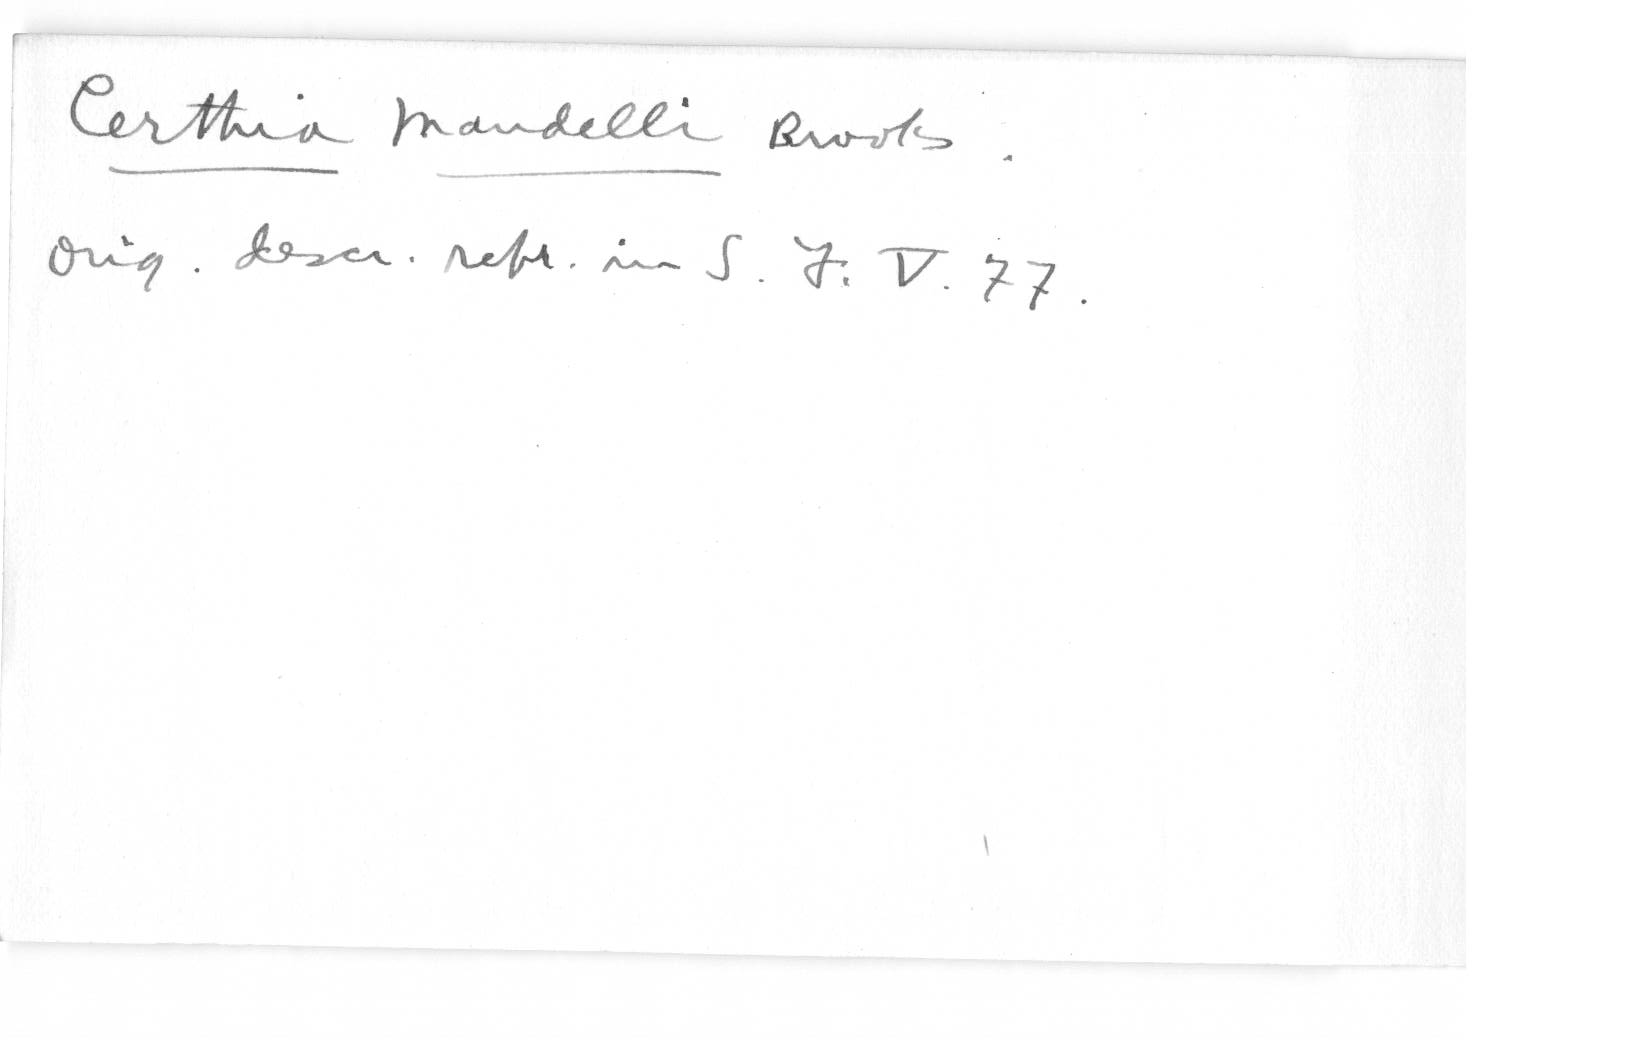 Certhia Mandelli Brooks.
Orig. descr. repr. in S. F. V. 77.